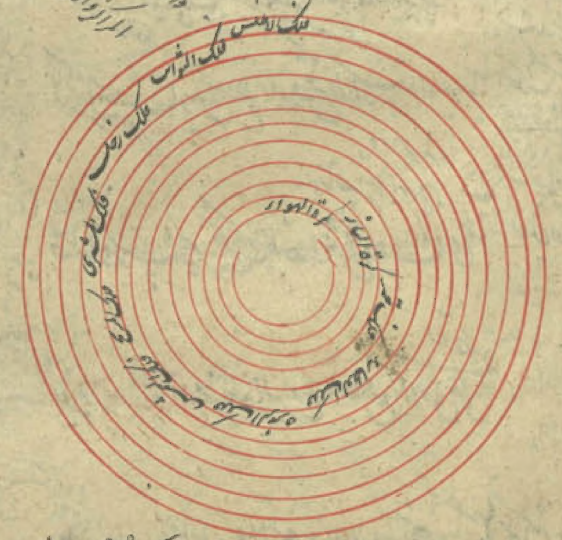 فلك الاطلس
فلك الثوابت
فلك زحل
فلك المشتري
فلك المريخ
فلك الشمس
فلك الزهرة
فلك عطارد
فلك قمر
كرة النار
كرة الهواء